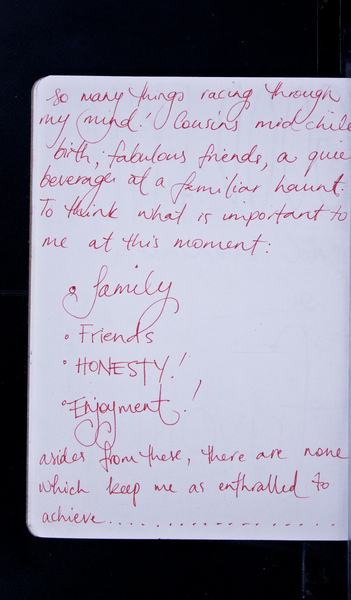 so many things racing through
my mind! Cousins mid chile
birth, fabulous friends, a quie
beverage at a familiar haunt.
To think what is important to
me at this moment:
• family
• Friends
• HONESTY!
• Enjoyment!
asides from these, there are none
which keep me as enthralled to
achieve....................